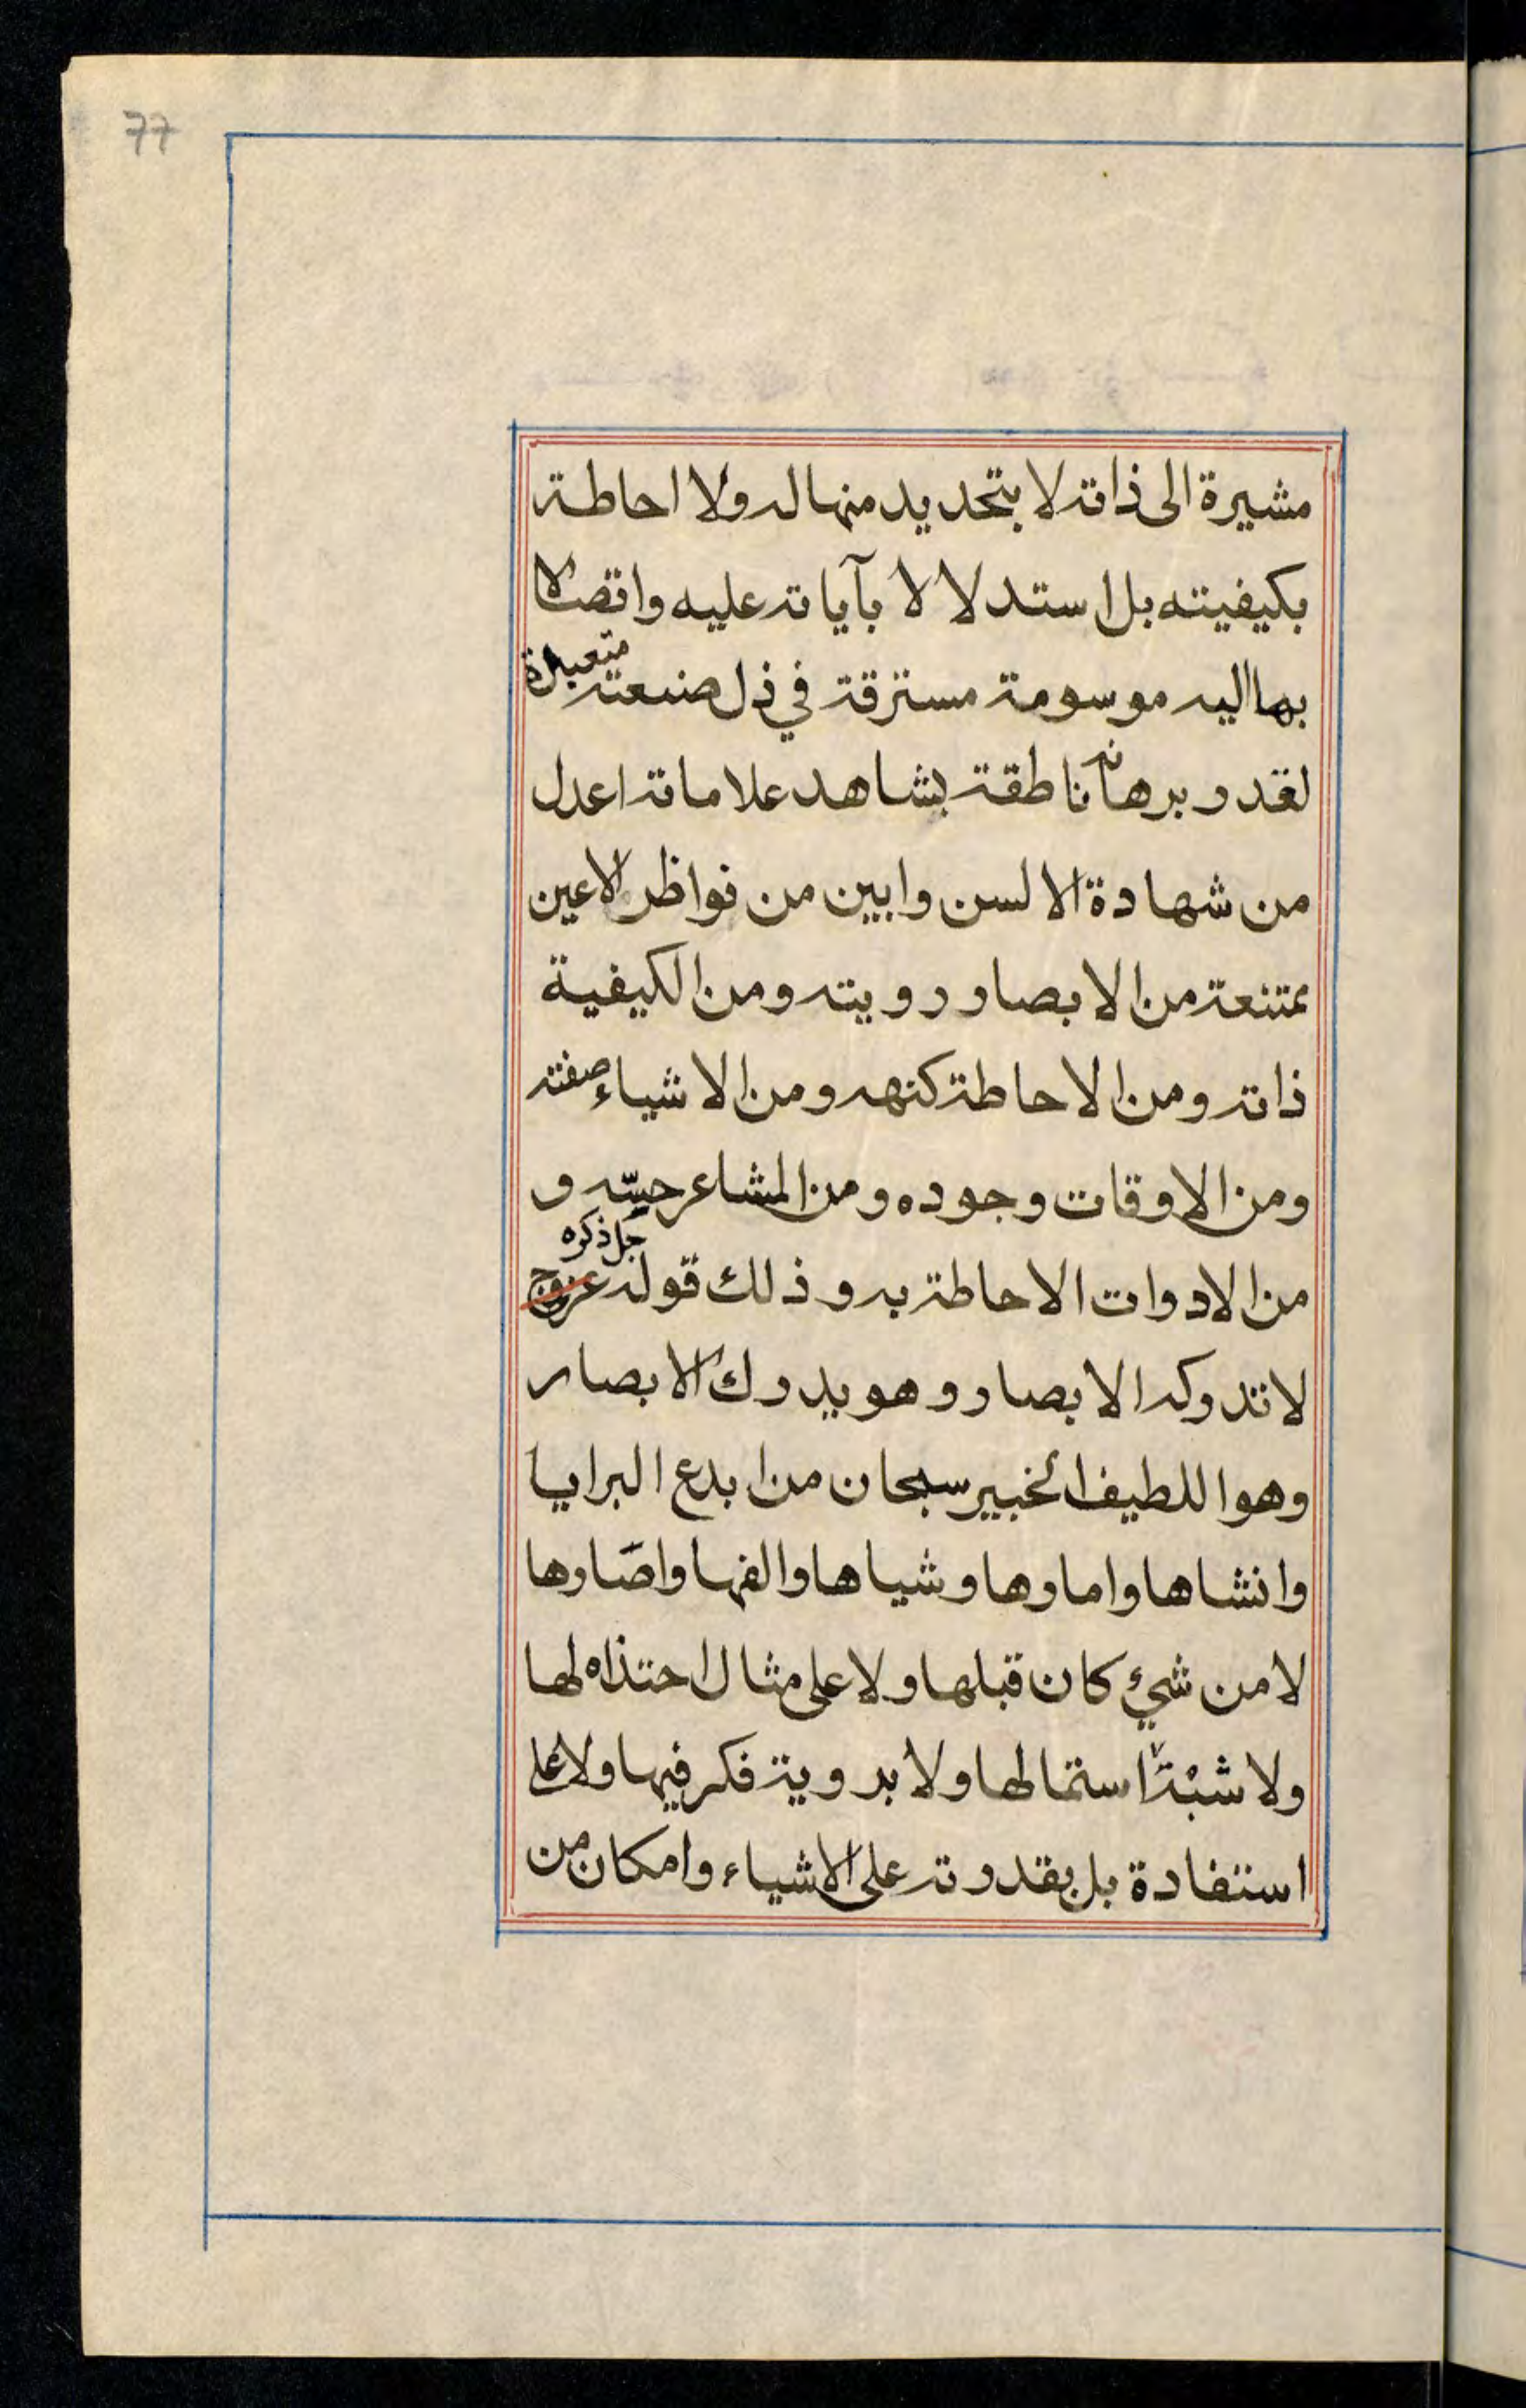 77
مشيرة الى ذاته لا بتحديد منها له ولا احاطة
بكيفيته بل استدلالا لا بآياته عليه واتصالا
بها اليه موسومة مسترقة في ذل صنعته متعبدة
لقدر برهانه ناطقة بشاهد علاماته اعدل
من شهادة الالسن وابين من نواظر الاعين
ممتنعة من الابصار رويته ومن الكيفية
ذاته ومن الاحاطة كنهه ومن الاشياء صفته
ومن الاوقات وجوده ومن المشاعر حسّه و
من الادوات الاحاطة به وذلك قوله عزوج جل ذكره
لا تدركه الابصار وهو يدرك الابصار
وهو اللطيف الخبير سبحان من ابدع البرايا
وانشاها واماوها وشياها والفها واصارها
لا من شيء كان قبلها ولا على مثال احتذاه لها
ولا شبْهًا استمالها ولا بروية فكر فيها ولا على
استفادة بل بقدرته على الاشياء وامكان من